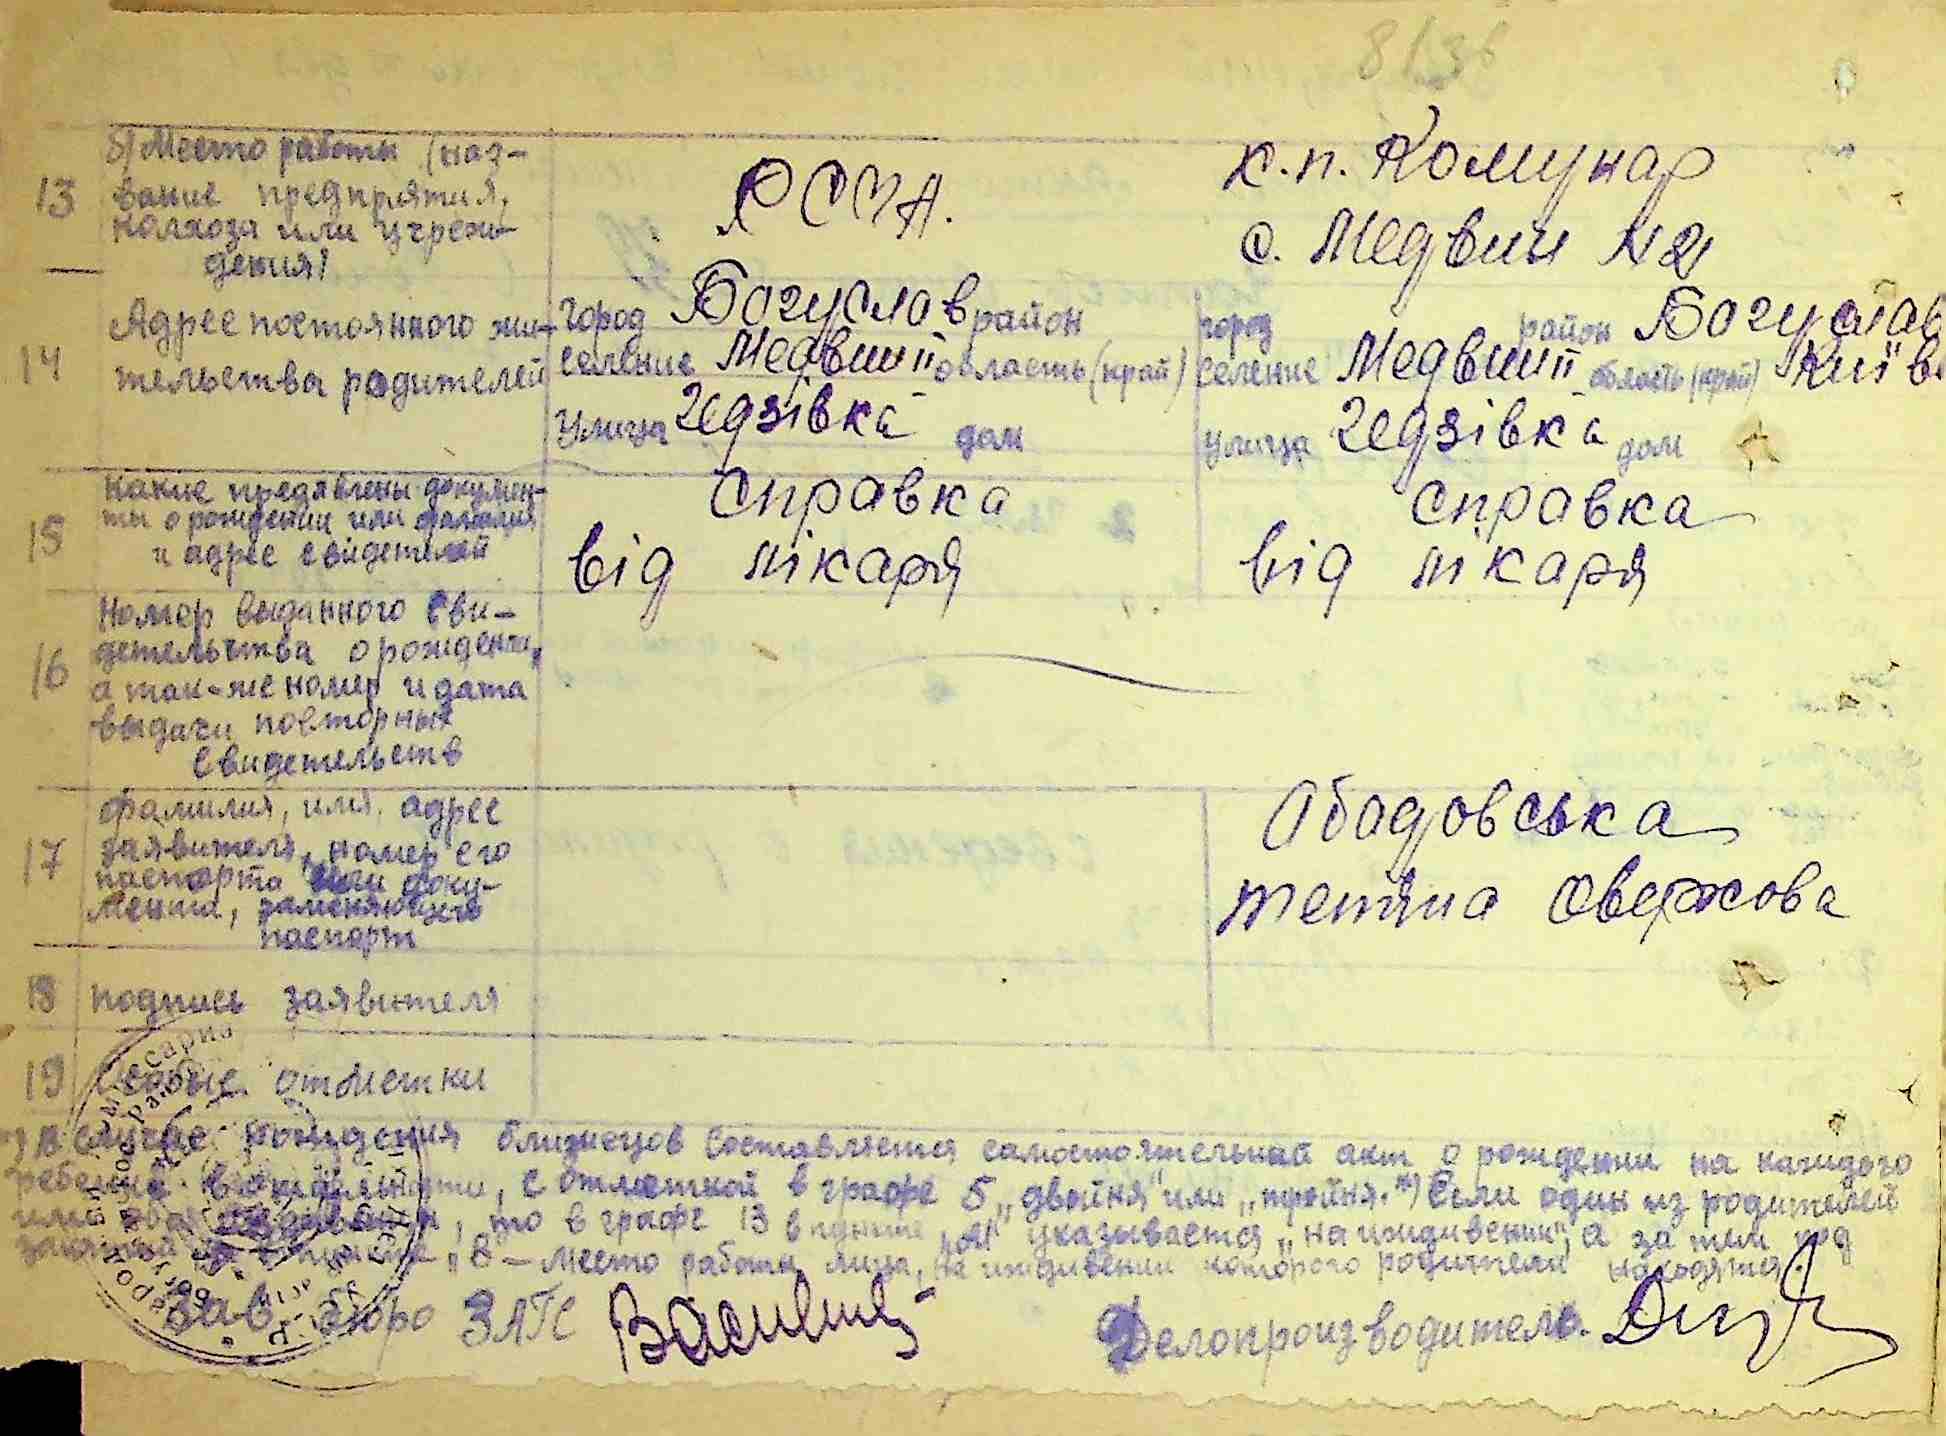 8/36
13 б) Место работы (наз-
вание предприятия,
колхоза или учреж-
дения)
РСЧА.
к.п. Комунар
с. Медвин №2
14 Адрес постоянного жи-
тельства родителей
город Богуслав район
селение Медвин ІІ область (край)
улица Гедзівка дом
город район Богуслав
селение Медвин ІІ область (край) Київ
улица Гедзівка дом
15 какие предявлены докумен-
ты о рождении или фамилия
и адрес свидетелей
справка
від лікаря
справка
від лікаря
16 Номер выданного сви-
детельства о рождении,
а так-же номер и дата
выдачи повторных
свидетельств
17 фамилия, имя, адрес
заявителя, номер его
паспорта или доку-
мента, заменяющего
паспорт
Абадовська
Тетяна
18 подпись заявителя
19 Особые отметки
*) В случае рождения близнецов составляется самостоятельный акт о рождении на каждого
ребенка в отдельности, с отметкой в графе 5 „двойня" или „тройня". **) Если один из родителей
или оба иждивенцы, то в графе 13 в пункте „А" указывается „на иждивении", а за тем под
„В - Место работы лица, на иждивении которого родители находятся.
Зав. бюро ЗАГС
Делопроизводитель.